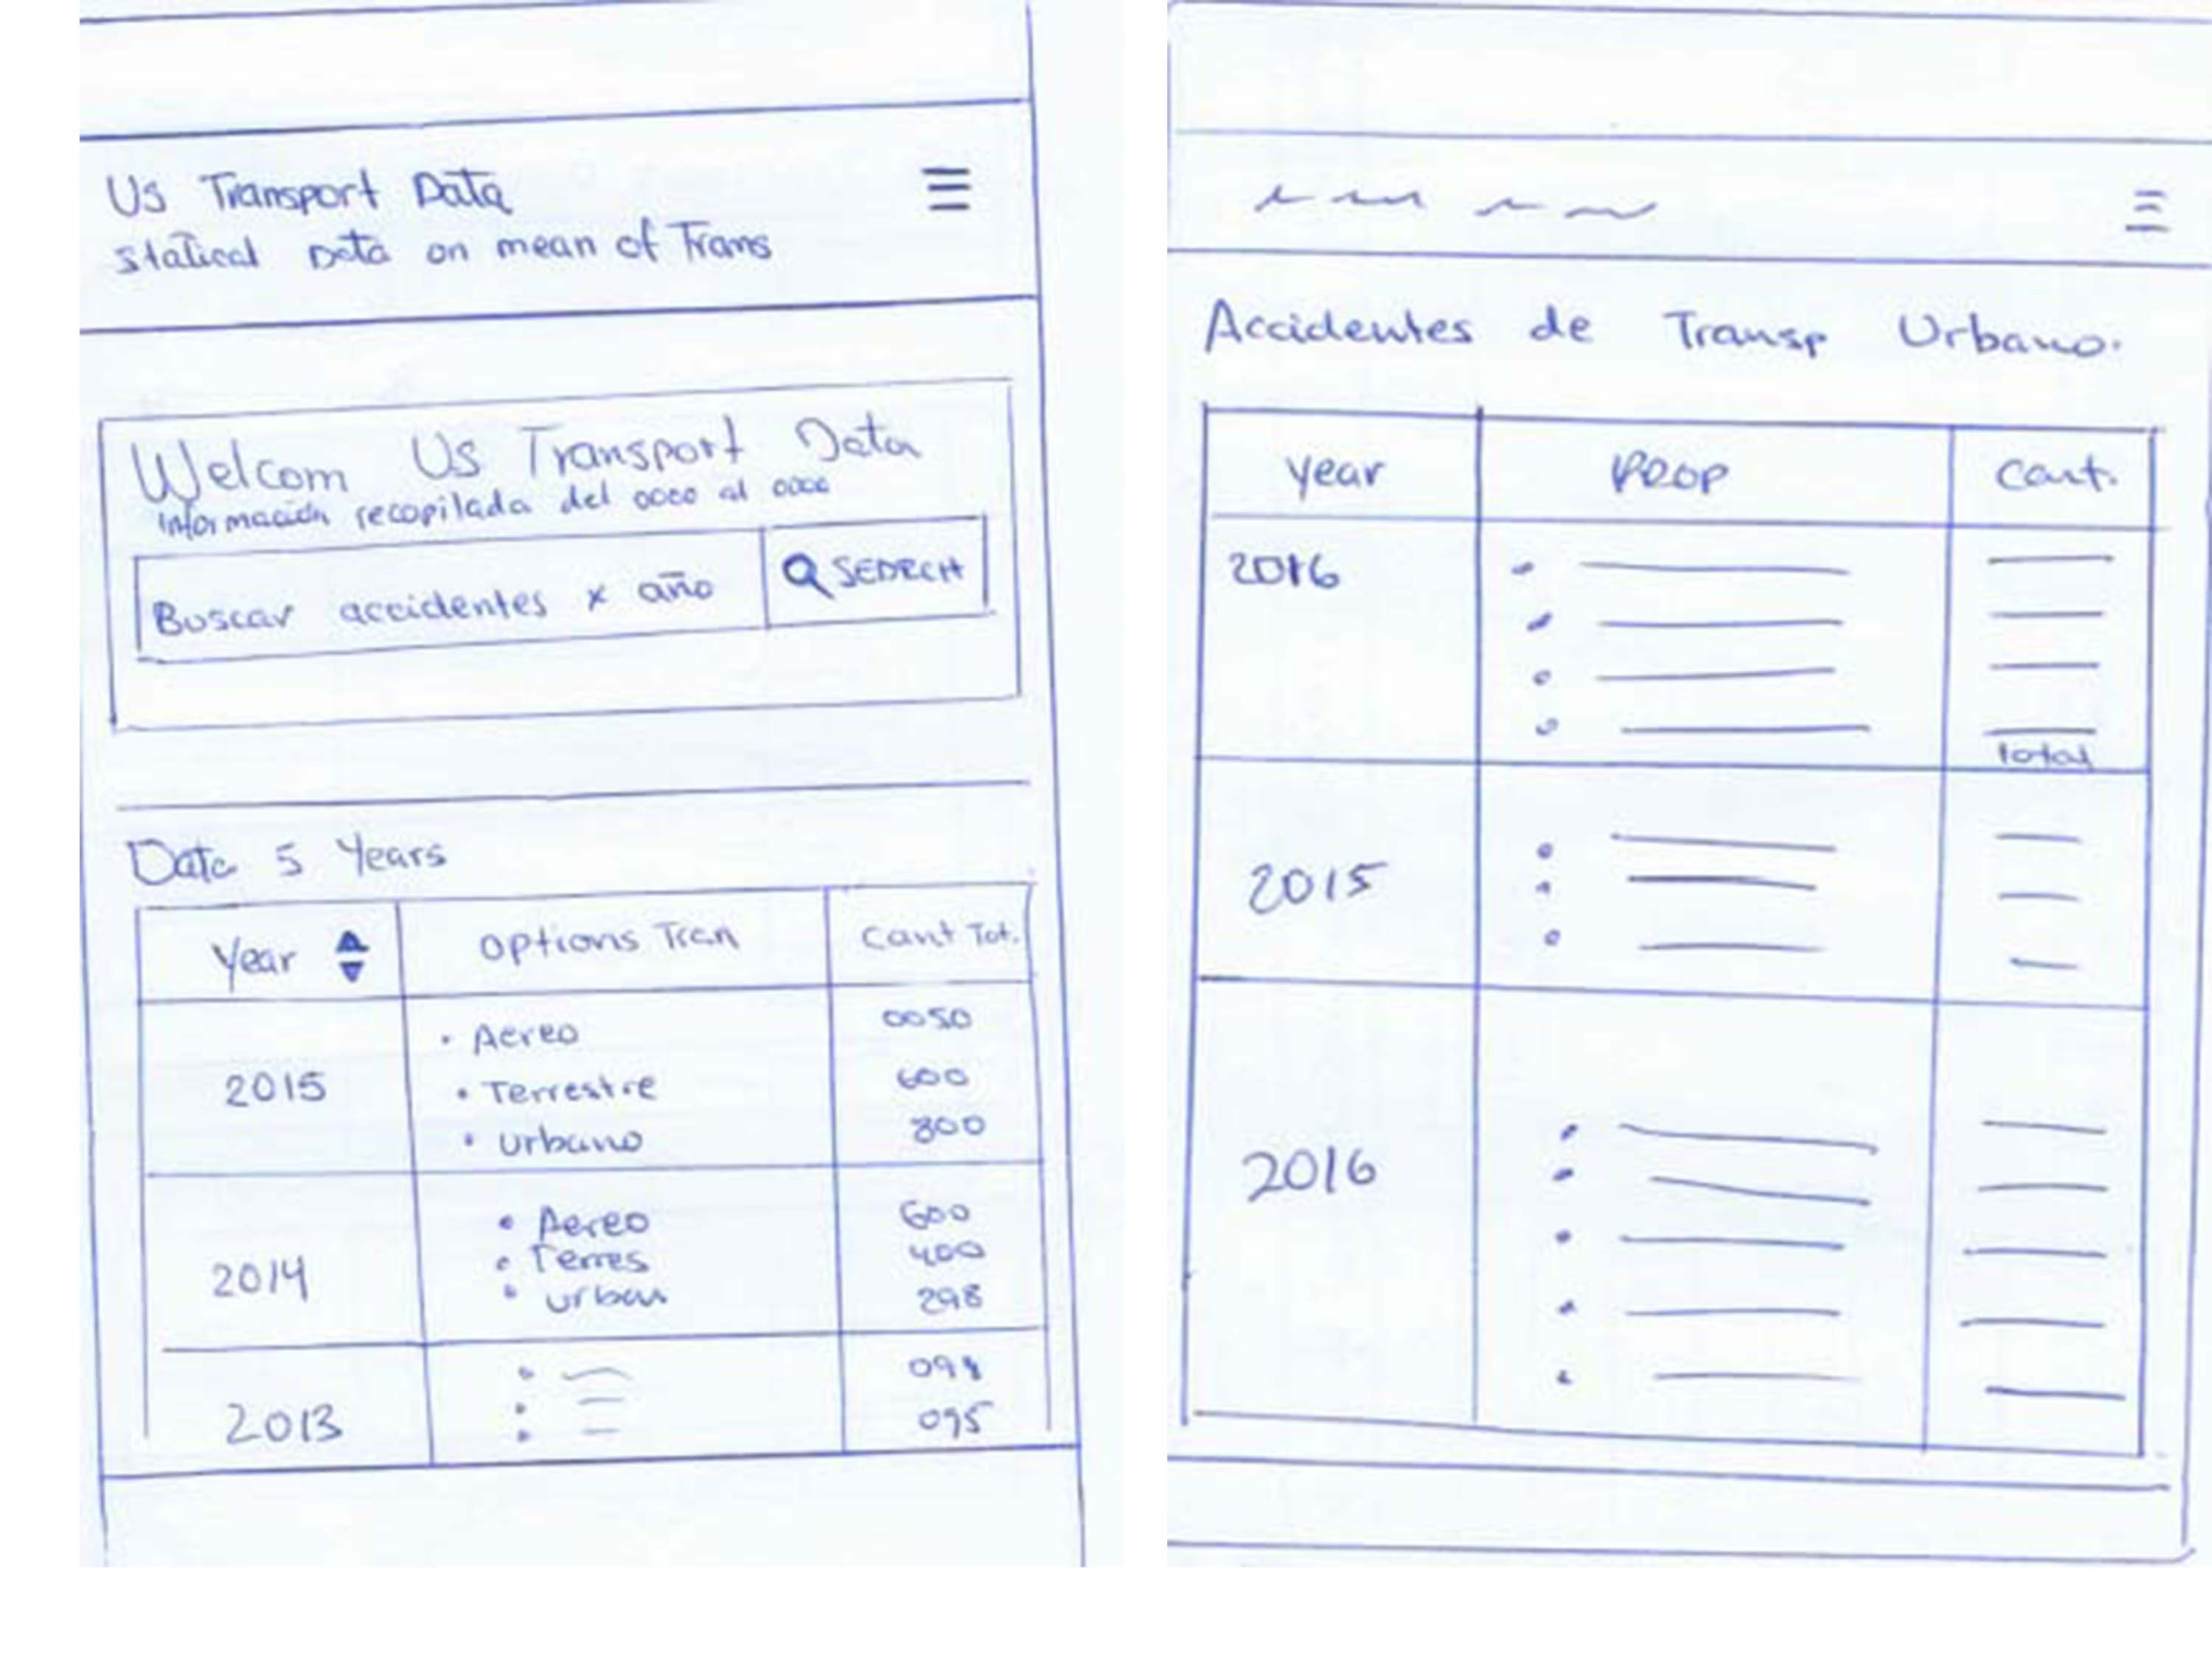 Us Transport Data
statical Data on mean of Trans
Welcom Us Transport Data
Información recopilada del 0000 al 0000
Buscar accidentes x año
SEARCH
Data 5 Years
Year Options Tran Cant Tot.
2015
• Aereo 0050
• Terrestre 600
• Urbano 300
2014
• Aereo 600
• Terres 400
• Urban 298
2013
095
Accidentes de Transp Urbano.
year PROP Cant.
2016
total
2015
2016